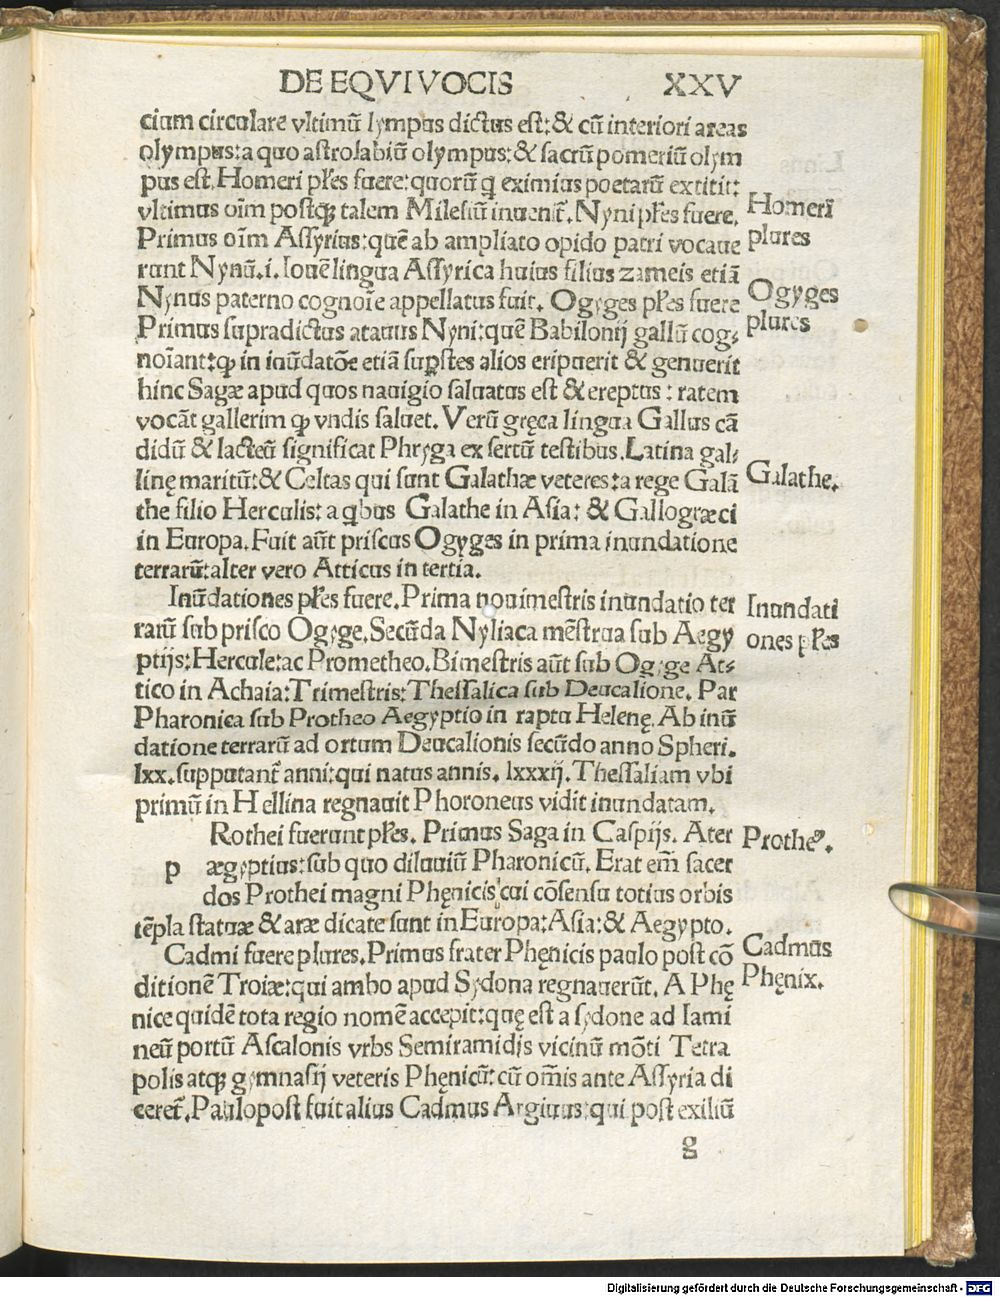 DE EQVIVOCIS XXV
cium circulare vltimū lympus dictus est: & cū interiori areas
olympus: a quo astrolabiū olympus: & sacrū pomeriū olym
pus est. Homeri plr̄es fuere: quorū qͥ eximius poetarū extitit:
vltimus oīm postqꝫ talem Milesiū inuenit̄. Nyni plr̄es fuere.
Homeri
plures
Primus oīm Assyrius: quē ab ampliato opido patri vocaue
runt Nynū. i. Iouē lingua Assyrica huius filius zameis etiā
Nynus paterno cognoīe appellatus fuit. Ogyges plr̄es fuere
Ogyges
plures
Primus supradictus atauus Nyni: quē Babilonij gallū cog-
noīant: ꝙ in inūdatōe etiā suꝑstes alios eripuerit & genuerit
hinc Sagæ apud quos nauigio saluatus est & ereptus: ratem
vocāt gallerim ꝙ vndis saluet. Verū gręca lingua Gallus cā
didū & lacteū significat Phryga ex sertū testibus. Latina gal-
linę maritū: & Celtas qui sunt Galathæ veteres: a rege Galā
Galathe.
the filio Herculis: a qͥbus Galathe in Asia: & Gallogræci
in Europa. Fuit aūt priscus Ogyges in prima inundatione
terrarū: alter vero Atticus in tertia.
Inūdationes plr̄es fuere. Prima nouimestris inundatio ter
Inundati
ones plr̄es
rarū sub prisco Ogyge. Secūda Nyliaca mēstrua sub Aegy
ptijs: Hercule: ac Prometheo. Bimestris aūt sub Ogyge At-
tico in Achaia: Trimestris: Thessalica sub Deucalione. Par
Pharonica sub Protheo Aegyptio in raptu Helenę. Ab inū
datione terrarū ad ortum Deucalionis secūdo anno Spheri.
lxx. supputant̄ anni: qui natus annis. lxxxij. Thessaliam vbi
primū in Hellina regnauit Phoroneus vidit inundatam.
Rothei fuerunt plr̄es. Primus Saga in Caspijs. Ater
Protheꝰ.
p ægyptius: sub quo diluuiū Pharonicū. Erat em̄ sacer
dos Prothei magni Phęnicis cui cōsensu totius orbis
tēpla statuæ & aræ dicate sunt in Europa: Asia: & Aegypto.
Cadmi fuere plures. Primus frater Phęnicis paulo post cō
Cadmus
Phęnix.
ditionē Troiæ: qui ambo apud Sydona regnauerūt. A Phę
nice quidē tota regio nomē accepit: quę est a sydone ad Iami
neū portū Ascalonis vrbs Semiramidis vicinū mōti Tetra
polis atqꝫ gymnasij veteris Phęnicū: cū om̄is ante Assyria di
ceret̄. Paulopost fuit alius Cadmus Argiuus: qui post exiliū
g
Digitalisierung gefördert durch die Deutsche Forschungsgemeinschaft - DFG